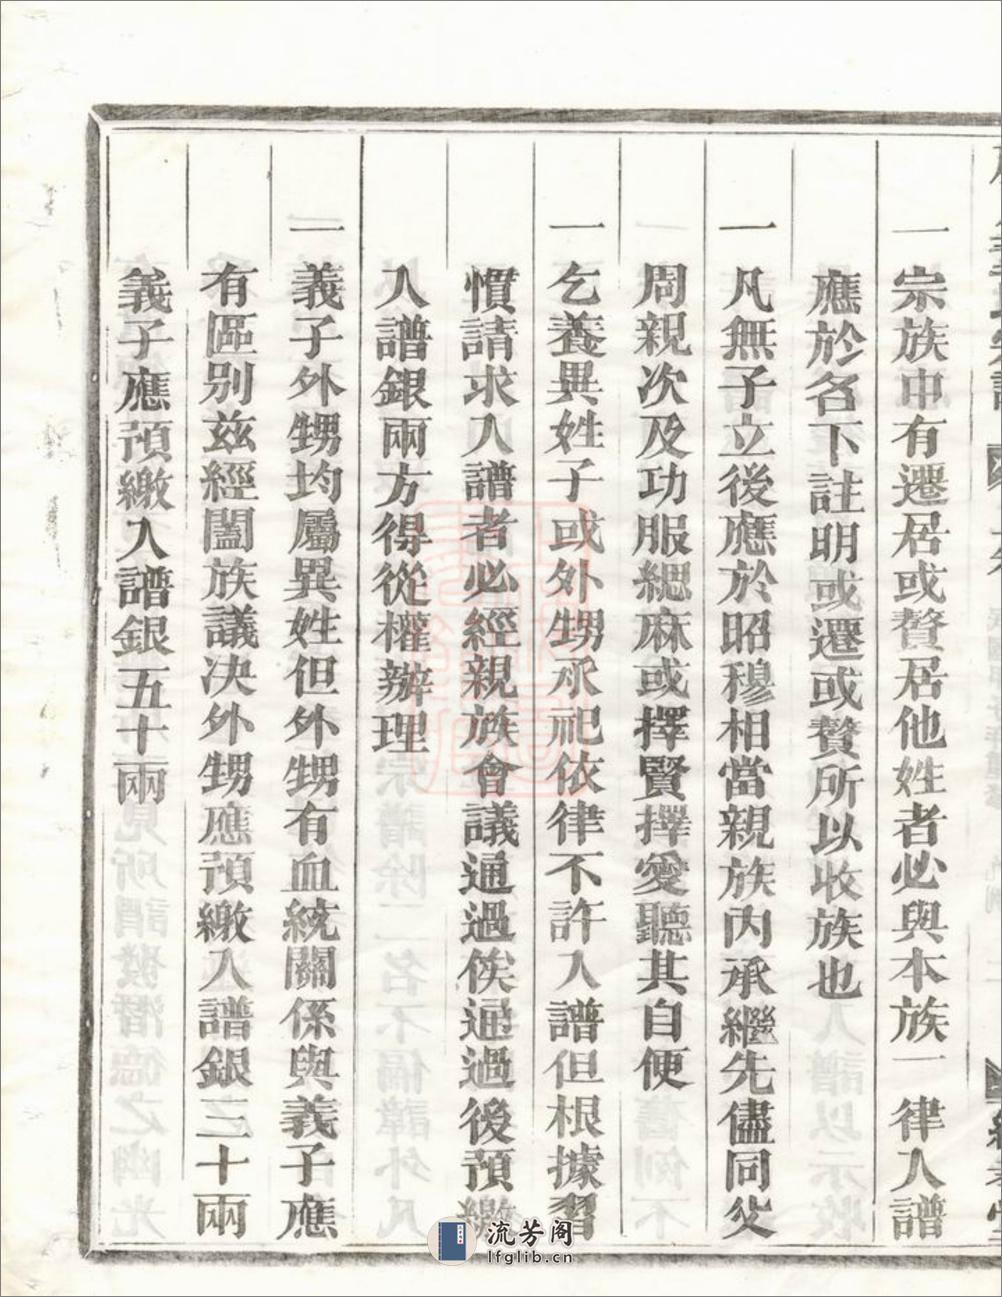 一宗族中有遷居或贅居他姓者必與本族一律入譜
應於名下註明或遷或贅所以收族也
一凡無子立後應於昭穆相當親族內承繼先儘同父
周親次及功服緦麻或擇賢擇愛聽其自便
一乞養異姓子或外甥承祀依律不許入譜但根據習
慣請求入譜者必經親族會議通過俟通過後預繳
入譜銀兩方得從權辦理
一義子外甥均屬異姓但外甥有血統關係與義子應
有區別兹經闔族議決外甥應預繳入譜銀三十兩
義子應預繳入譜銀五十兩
流芳阁
lfglib.cn